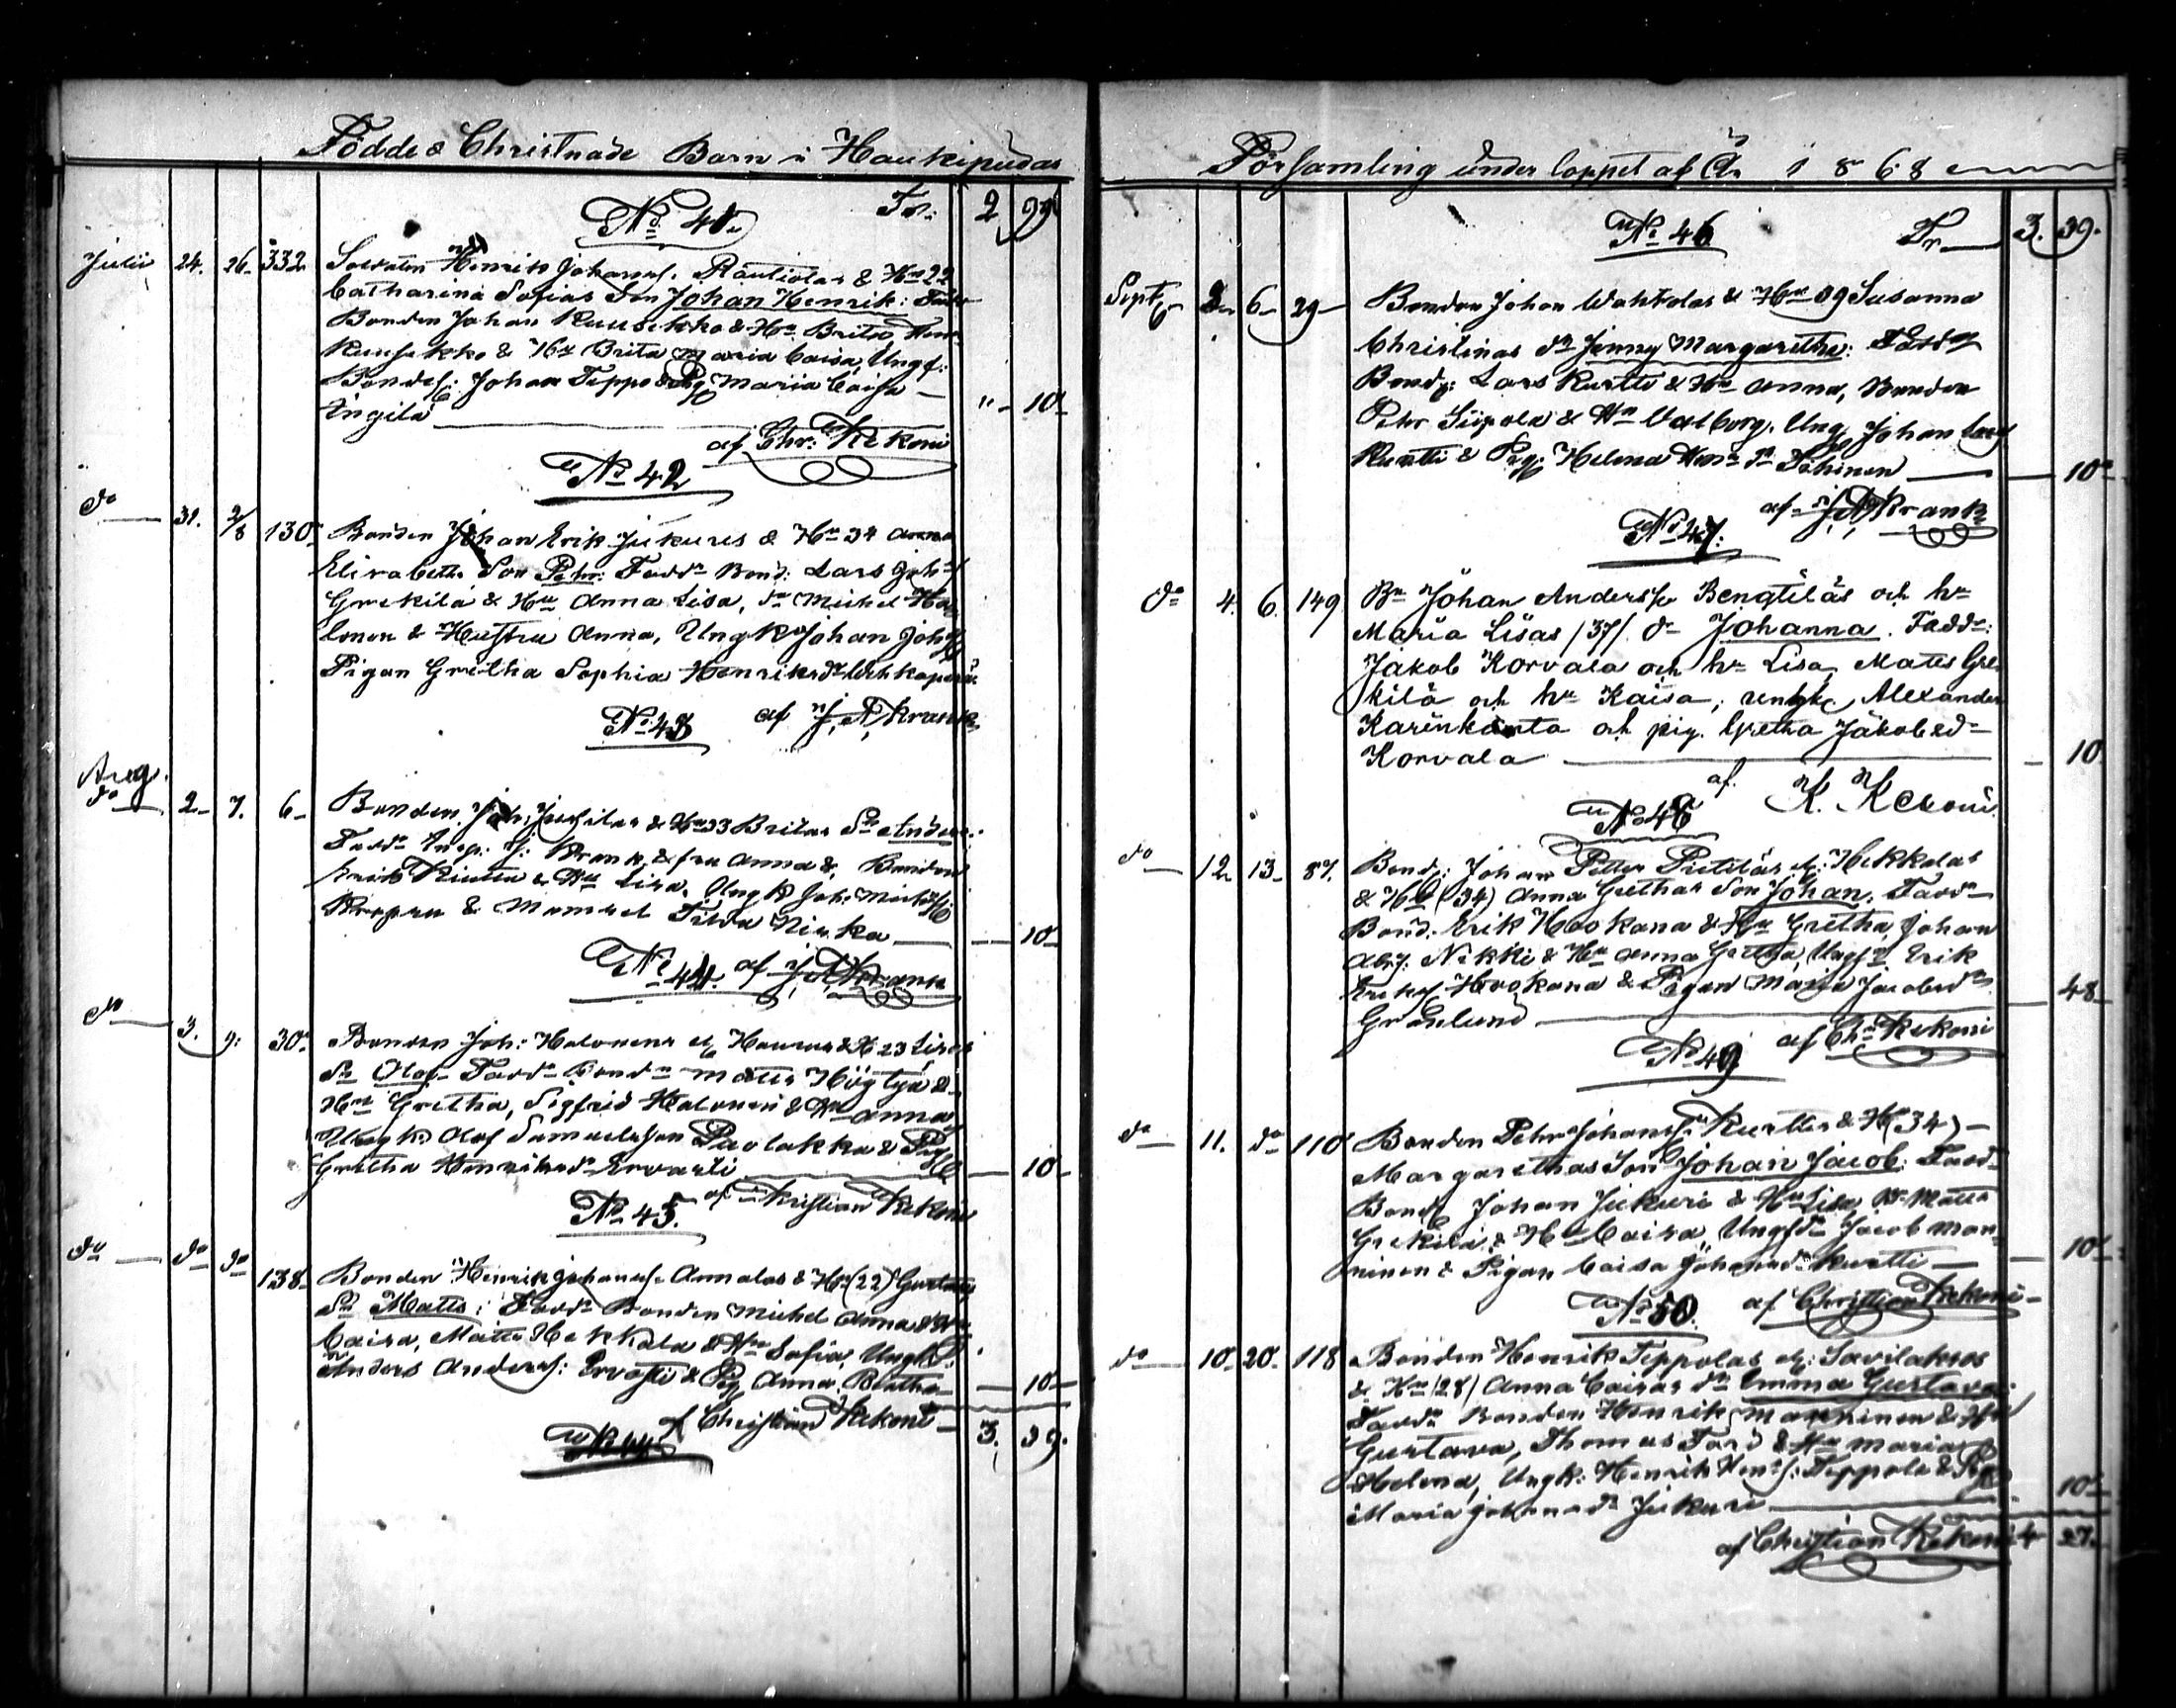 Födde & Christnade Barn i Haukipudas
No 41. Tr. 2 39
Julii 24. 26. 332 Soldaten Henrik Johanss. Rautiolas & Hu 22
Catharina Sofias Son Johan Henrik: Fadd
Bonden Johan Kuusekko & Hu Brita
& Hu Brita Maria Caisa, Ungk.
Bondes: Johan Teppo & Pig Maria Caisa
Engilä " 10
af Chr. Kekoni
No 42
do 31. 2/8 130 Bonden Johan Erik Jukures & Hu 34 Anna
Elisabeths Son Pehr: Faddr Bond: Lars Joh
Grekilä & Hu Anna Lisa, do Michel Ha
lonen & Hustru Anna, Ungk Johan Johss
Pigan Gretha Sophia Henriksdr
No 43 af J. A. Krank
Aug.
do 2 7. 6 Bonden Joh: & Hu 33 Britas Sn
Faddr Insp: J: Krank & fru Anna &, Bonden
Erik & Hu Lisa, Ungk Joh: Michelss
& Mamsel Tilda 10
No 44. af J. A. Krank
do 3. 9. 30 Bonden Joh: Halonens & H 23 Lisas
Sn Olof Faddr Bondn Matts Högtyä &
Hu Gretha, Sigfrid Halonen & Hu Anna
Ungk: Olof Samuelsson Paolakka & Pig
Gretha Henriksdr Ervasti 10
No 45. af Kristian Kekoni
do do do 138 Bonden Henrik Johanss. Annalas & Hu (22) Gustavas
Sn Matts: Faddr Bonden Michel Annala &
Caisa, Matts Hekkala & Hu Sofia, Ungk:
Anders Anderss: Ervasti & Pig Anna Beatha 10
af Christian Kekoni 3. 39.
Församling under loppet af År 1868
No 46 Tr. 3. 39.
Septr 2 6 29 Bonden Johan Wahtolas & Hu 39 Susanna
Christinas dr Jenny Margaretha: Faddr
Bond: Lars Kurtti & Hu Anna, Bonden
Pehr Siipola & Hu Valborg, Ung Johan Lars
Kurtti & Pig: Helena dr 10
af J. A. Krank
No 47.
do 4. 6. 149 Bn Johan Anderss Bengtiläs och hu
Maria Lisas /37/ dr Johanna. Faddr:
Jakob Korvala och hu Lisa, Matts Gre
kilä och hu Kaisa, ungk Alexander
Karinkanta och pig. Gretha Jakobsdr
Korvala 10
af K. Kekoni.
No 48
do 12. 13 87. Bond: Johan Petter Pietiläs el: Hekkalas
& Hu (34) Anna Grethas Son Johan. Faddr
Bond: Erik Hookana & Hu Gretha, Johan
Abrs: Nikki & Hu Anna Gretha, Ungk Erik
Erikss Hookana & Pigan Maija Jacobsdr
Grönlund 48
af Chr Kekoni
No 49
do 11. do 110 Bonden Pehr Johanss: Kurttis & H (34)
Margarethas Son Johan Jacob: Faddr
Bond Johan Jukuri & Hu Lisa, Bn Matts
Grekilä & Hu Caisa, Ungk Jacob Man
ninen & Pigan Caisa Johansdr Kurtti 10
No 50. af Christian Kekoni
do 10. 20. 118 Bonden Henrik Teppolas el: Savilaksos
& Hu (28) Anna Caisas dr Emma Gustava
Faddr Bonden Henrik Manninen & Hu
Gustava, Thomas & Hu Maria
Helena, Ungk: Henrik Henss: Teppola & Pig
Maria Johansdr Jukuri 10
af Christian Kekoni 4 27.